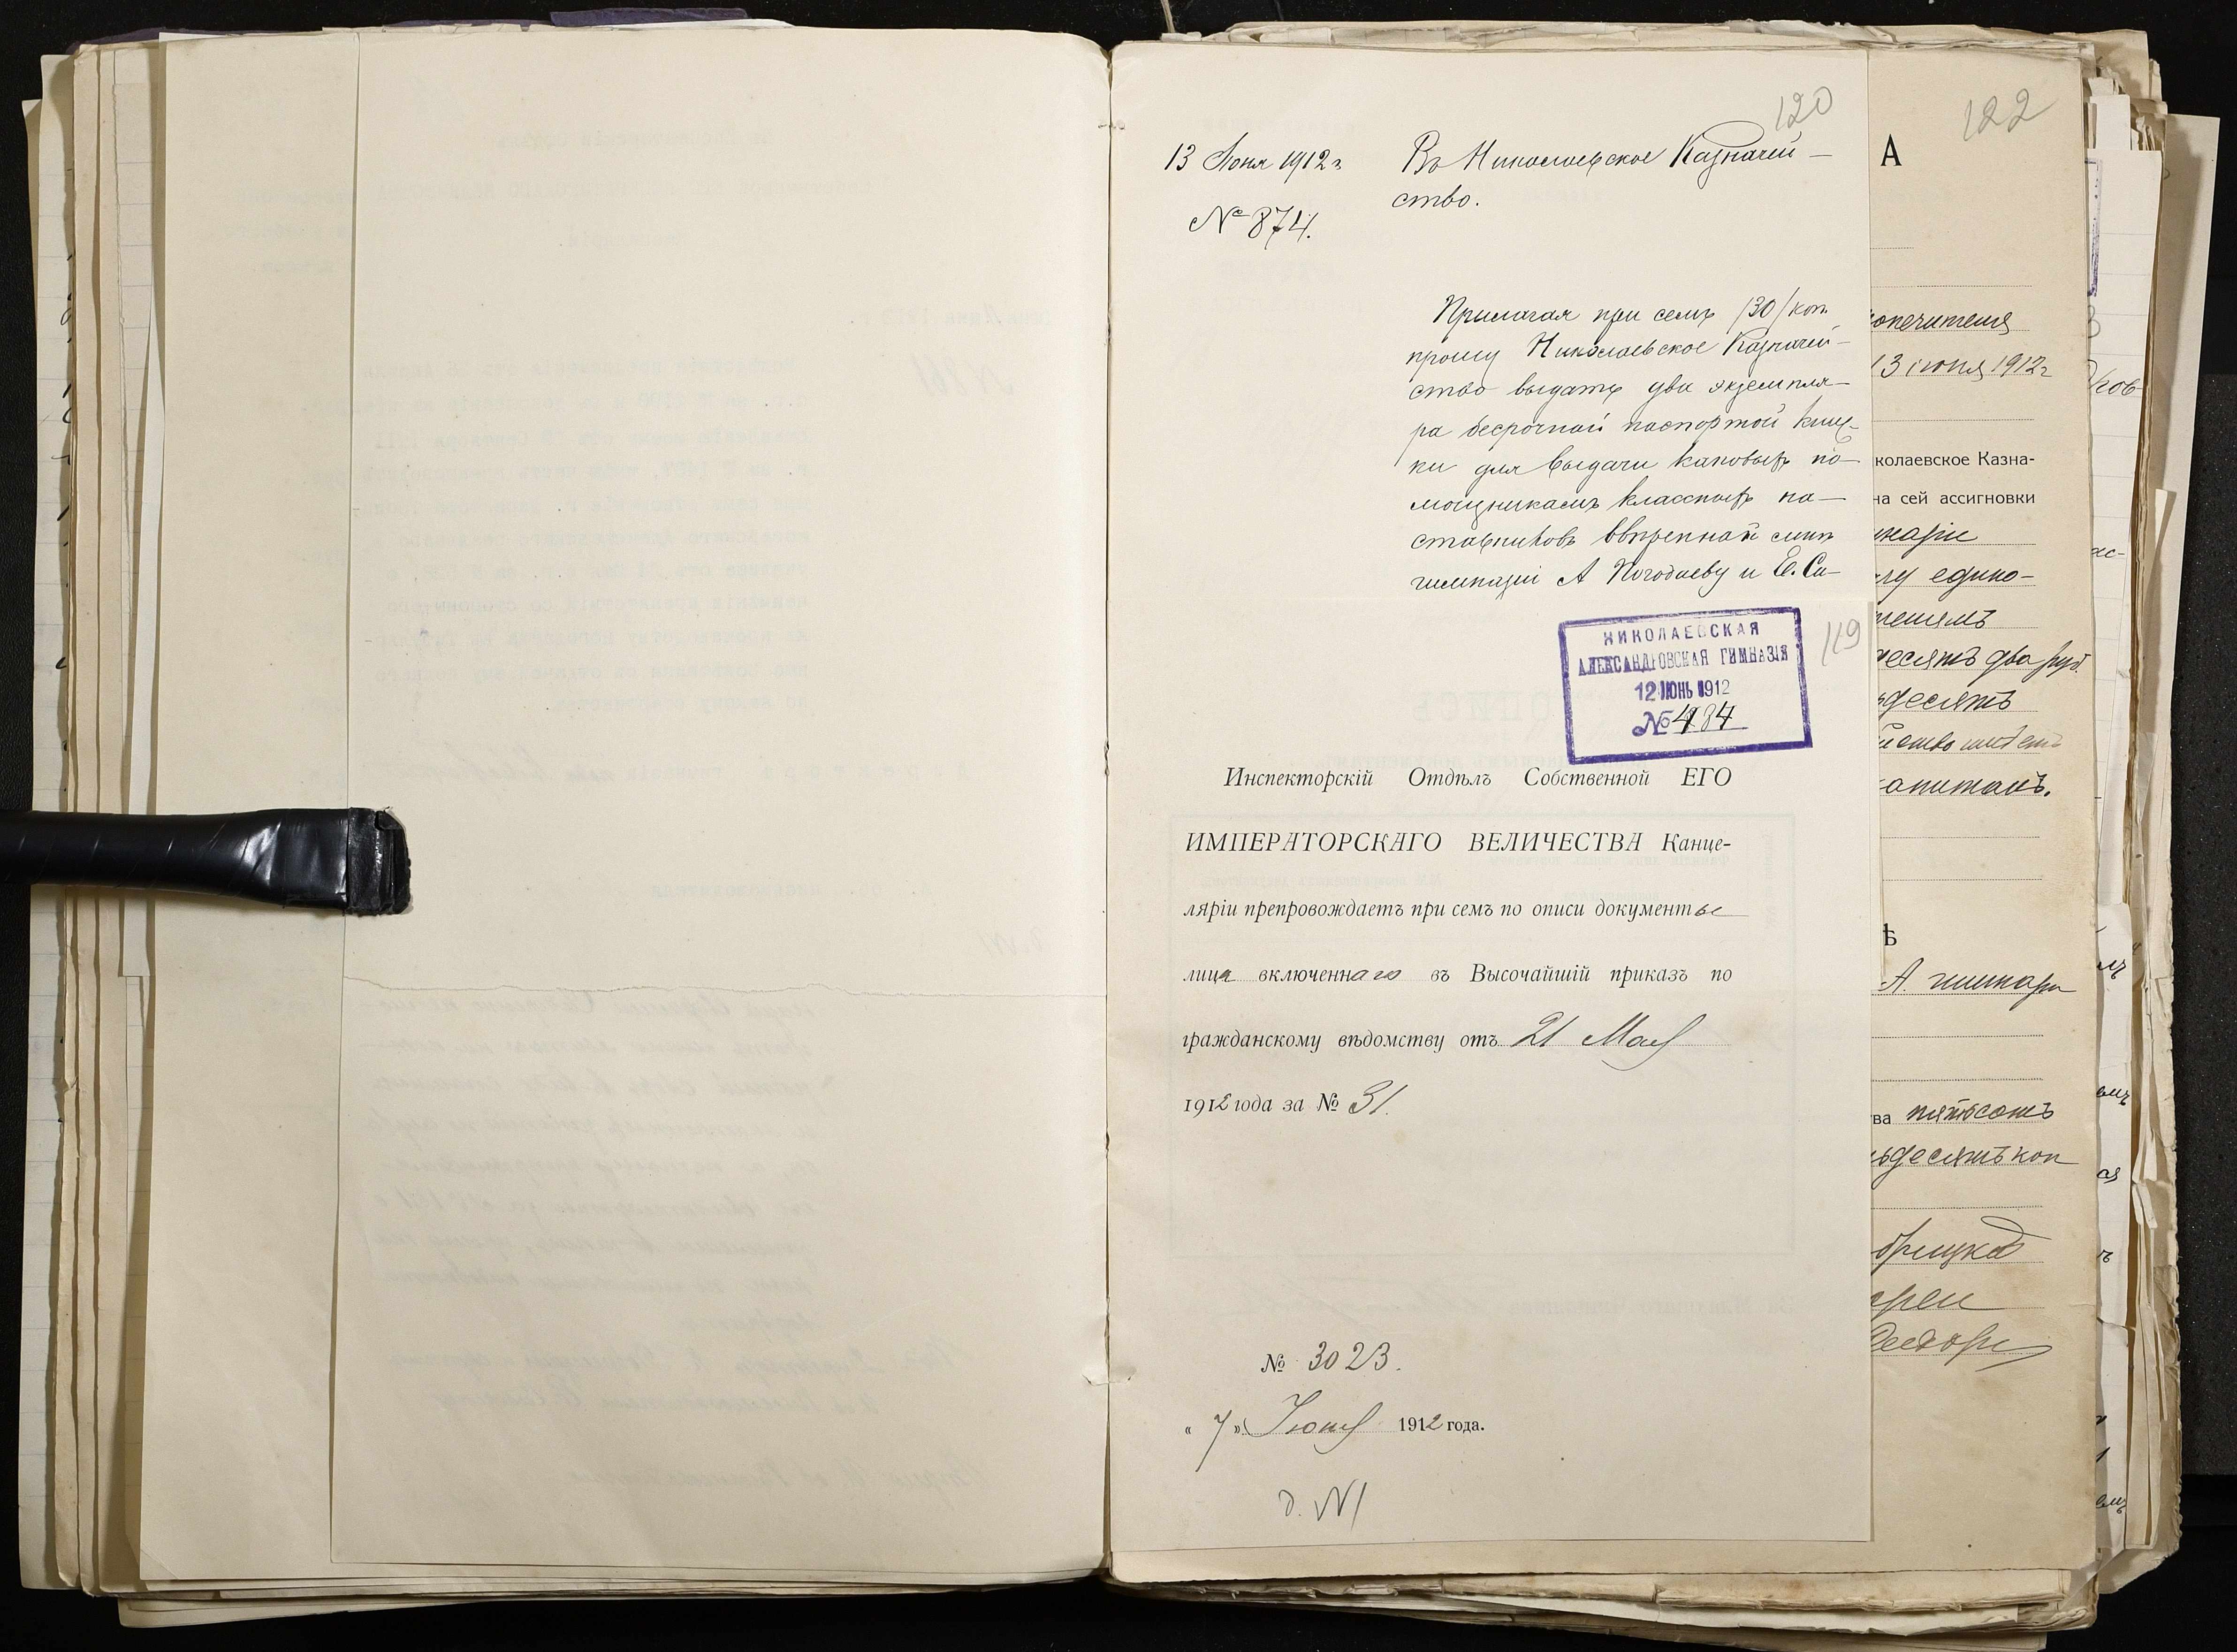 120
13 Іюня 1912 г
№ 874.
Въ Николаевское Казначей-
ство.
Прилагая при семъ /30/ коп.
прошу Николаевское Казначей-
ство выдать два экземпля-
ра безсрочной паспортной книж-
ки для выдачи каковыхъ по-
мощникамъ классныхъ на-
ставниковъ ввѣренной мнѣ
гимназіи А Погодаеву и Е. Са-
119
НИКОЛАЕВСКАЯ
АЛЕКСАНДРОВСКАЯ ГИМНАЗІЯ
12 ІЮНЬ 1912
№ 484
Инспекторскій Отдѣлъ Собственной ЕГО
ИМПЕРАТОРСКАГО ВЕЛИЧЕСТВА Канце-
ляріи препровождаетъ при семъ по описи документы
лица включеннаго въ Высочайшій приказъ по
гражданскому вѣдомству отъ 21 Мая
1912 года за № 31.
№ 3023.
« 7 » Іюня 1912 года.
д. №1
122
А
опечителя
13 іюня 1912 г
колаевское Казна-
на сей ассигновки
назіи
му едино-
телямъ
десятъ два руб.
ьдесятъ
капиталъ.
ѣ
А. гимназіи
ва пятьсотъ
ьдесятъ коп